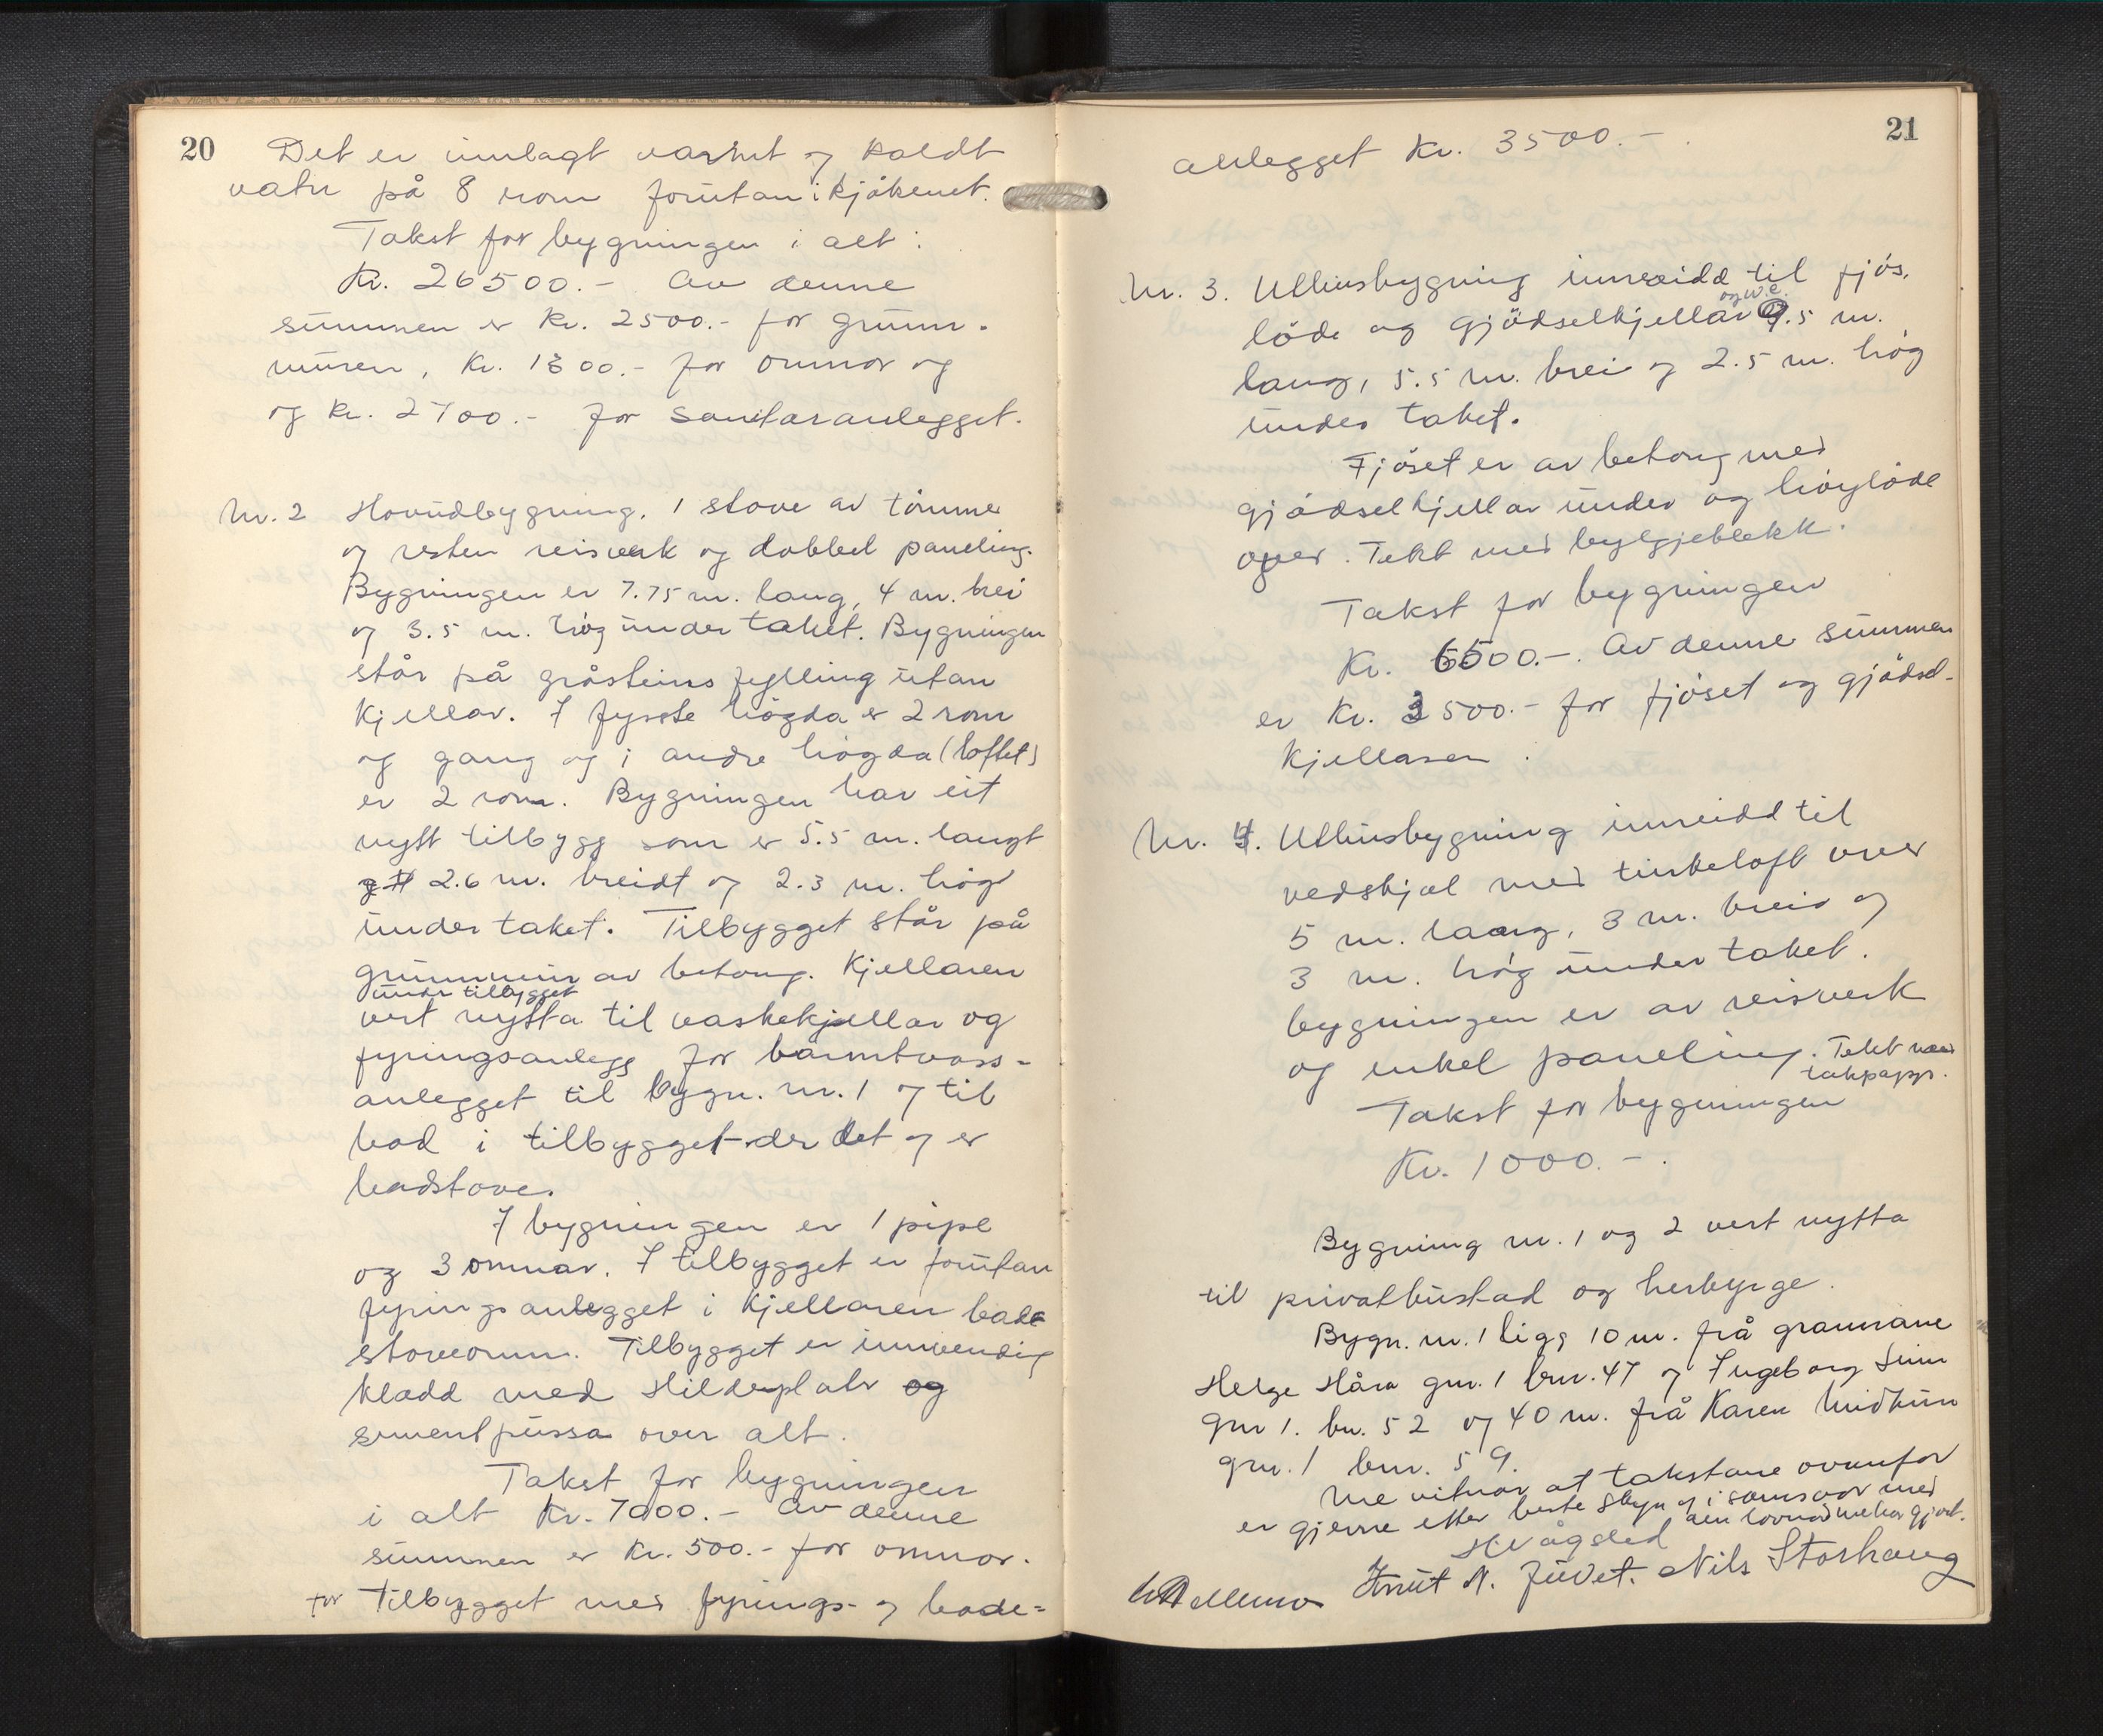 20
Det er innlagt varmt og kaldt
vatn på 8 rom forutan i kjökenet.
Takst for bygningen i alt:
Kr. 26500.- Av denne
summen er kr. 2500.- for grunn-
muren, kr. 1300.- for omnar og
og kr. 2700.- for sanitæranlegget.
Nr. 2 Hovudbygning. 1 stove av tömmer
og resten reisverk og dobbel paneling.
Bygningen er 7.75 m. lang, 4 m. brei
og 3.5 m. hög under taket. Bygningen
står på gråsteins fylling utan
kjellar. I fyrste högda er 2 rom
og gang og i andre högda (loftet)
er 2 rom. Bygningen har eit
nytt tilbygg som er 5.5 m. langt
2.6 m. breidt og 2.3 m. hög
under taket. Tilbygget står på
grunnmur av betong. Kjellaren
under tilbygget
vert nytta til vaskekjellar og
fyringsanlegg for varmtvass-
anlegget til bygn. nr. 1 og til
bad i tilbygget der det og er
badstove.
I bygningen er 1 pipe
og 3 omnar. I tilbygget er forutan
fyringsanlegget i kjellaren bade
stoveomn. Tilbygget er innvendig
kledd med Hilderplatr og
sementpussa over alt.
Takst for bygningen
i alt Kr. 7000.- Av denne
summen er kr. 500.- for omnar.
for Tilbygget med fyrings- og bade-
21
anlegget Kr. 3500.-
Nr. 3. Uthusbygning innreidd til fjös,
og w.c.
löde og gjödselkjellar 9.5 m.
lang, 5.5 m. brei og 2.5 m. hög
under taket.
Fjöset er av betong med
gjödselkjellar under og höylöde
over. Tekt med bylgjeblekk.
Takst for bygningen
Kr. 6500.-. Av denne summen
er Kr. 3500.- for fjöset og gjödsel-
kjellaren.
Nr. 4. Uthusbygning innreidd til
vedskjel med turkeloft over
5 m. lang, 3 m. brei og
3 m. hög under taket.
bygningen er av reisverk
og enkel paneling. Tekt med
takpapp.
Takst for bygningen
Kr. 1000.-.
Bygning nr. 1 og 2 vert nytta
til privatbustad og herbyrge.
Bygn. nr. 1 ligg 10 m. frå grannane
Helge Håra gnr. 1 bnr. 47 og Ingeborg Seim
gnr 1. bn. 52 og 40 m. frå Karen Midtun
gnr. 1 bnr. 59.
Me vitnar at takstane ovanfor
er gjevne etter beste skyn og i samsvar med
den lovnad me har gjort.
Knut N. Juvet. Nils Storhaug